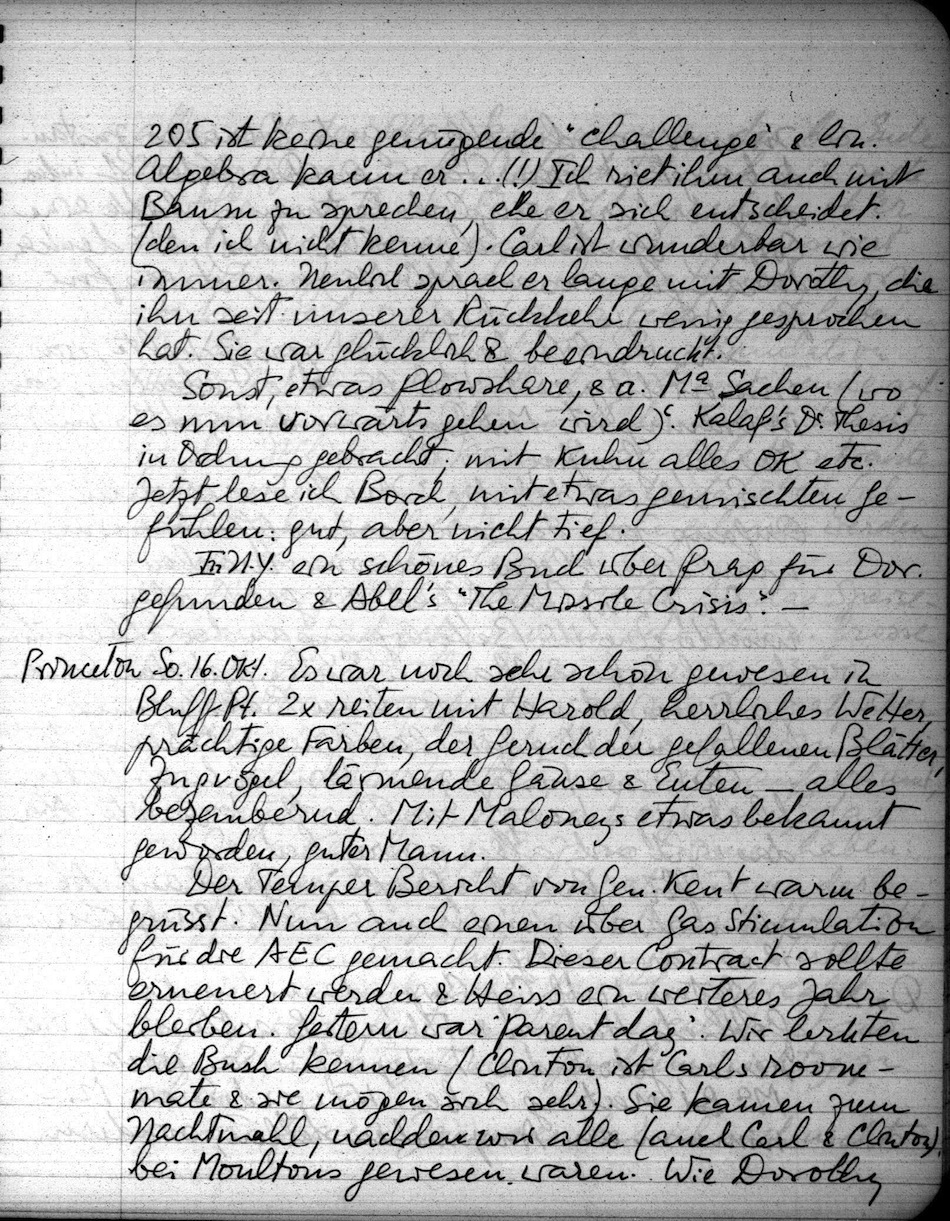 205 ist keine genügende "challenge" & lin.
Algebra kann er...(!) Ich riet ihm auch mit
Baum zu sprechen, ehe er sich entscheidet.
(den ich nicht kenne). Carl ist wunderbar wie
immer. Neulich sprach er lange mit Dorothy, die
ihn seit unserer Rückkehr wenig gesprochen
hat. Sie war glücklich & beeindruckt.
Sonst, etwas Plowshare, & a. Ma Sachen (wo
es nun vorwärts gehen wird). Kalaf's D. Thesis
in Ordnung gebracht; mit Kuhn alles OK etc.
Jetzt lese ich Borch, mit etwas gemischten Ge-
fühlen: gut, aber nicht tief.
In N.Y. ein schönes Buch über für Dor.
gefunden & Abel's "The Missile Crisis". —
Princeton So. 16. Okt. Es war noch sehr schön gewesen in
Bluff Pt. 2x reiten mit Harold, herrliches Wetter,
prächtige Farben, der Geruch der gefallenen Blätter,
Zugvögel, lärmende Gänse & Enten — alles
bezaubernd. Mit Maloneys etwas bekannt
geworden, guter Mann.
Der Temper Bericht von Gen. Kent warm be-
grüsst. Nun auch einen über Gas Stimulation
für die AEC gemacht. Dieser Contract sollte
erneuert werden & Heiss ein weiteres Jahr
bleiben. Gestern war "Parent day". Wir lernten
die Bush kennen (Clinton ist Carls room-
mate & sie mögen sich sehr). Sie kamen zum
Nachtmahl, nachdem wir alle (auch Carl & Clinton)
bei Moultons gewesen waren. Wie Dorothy